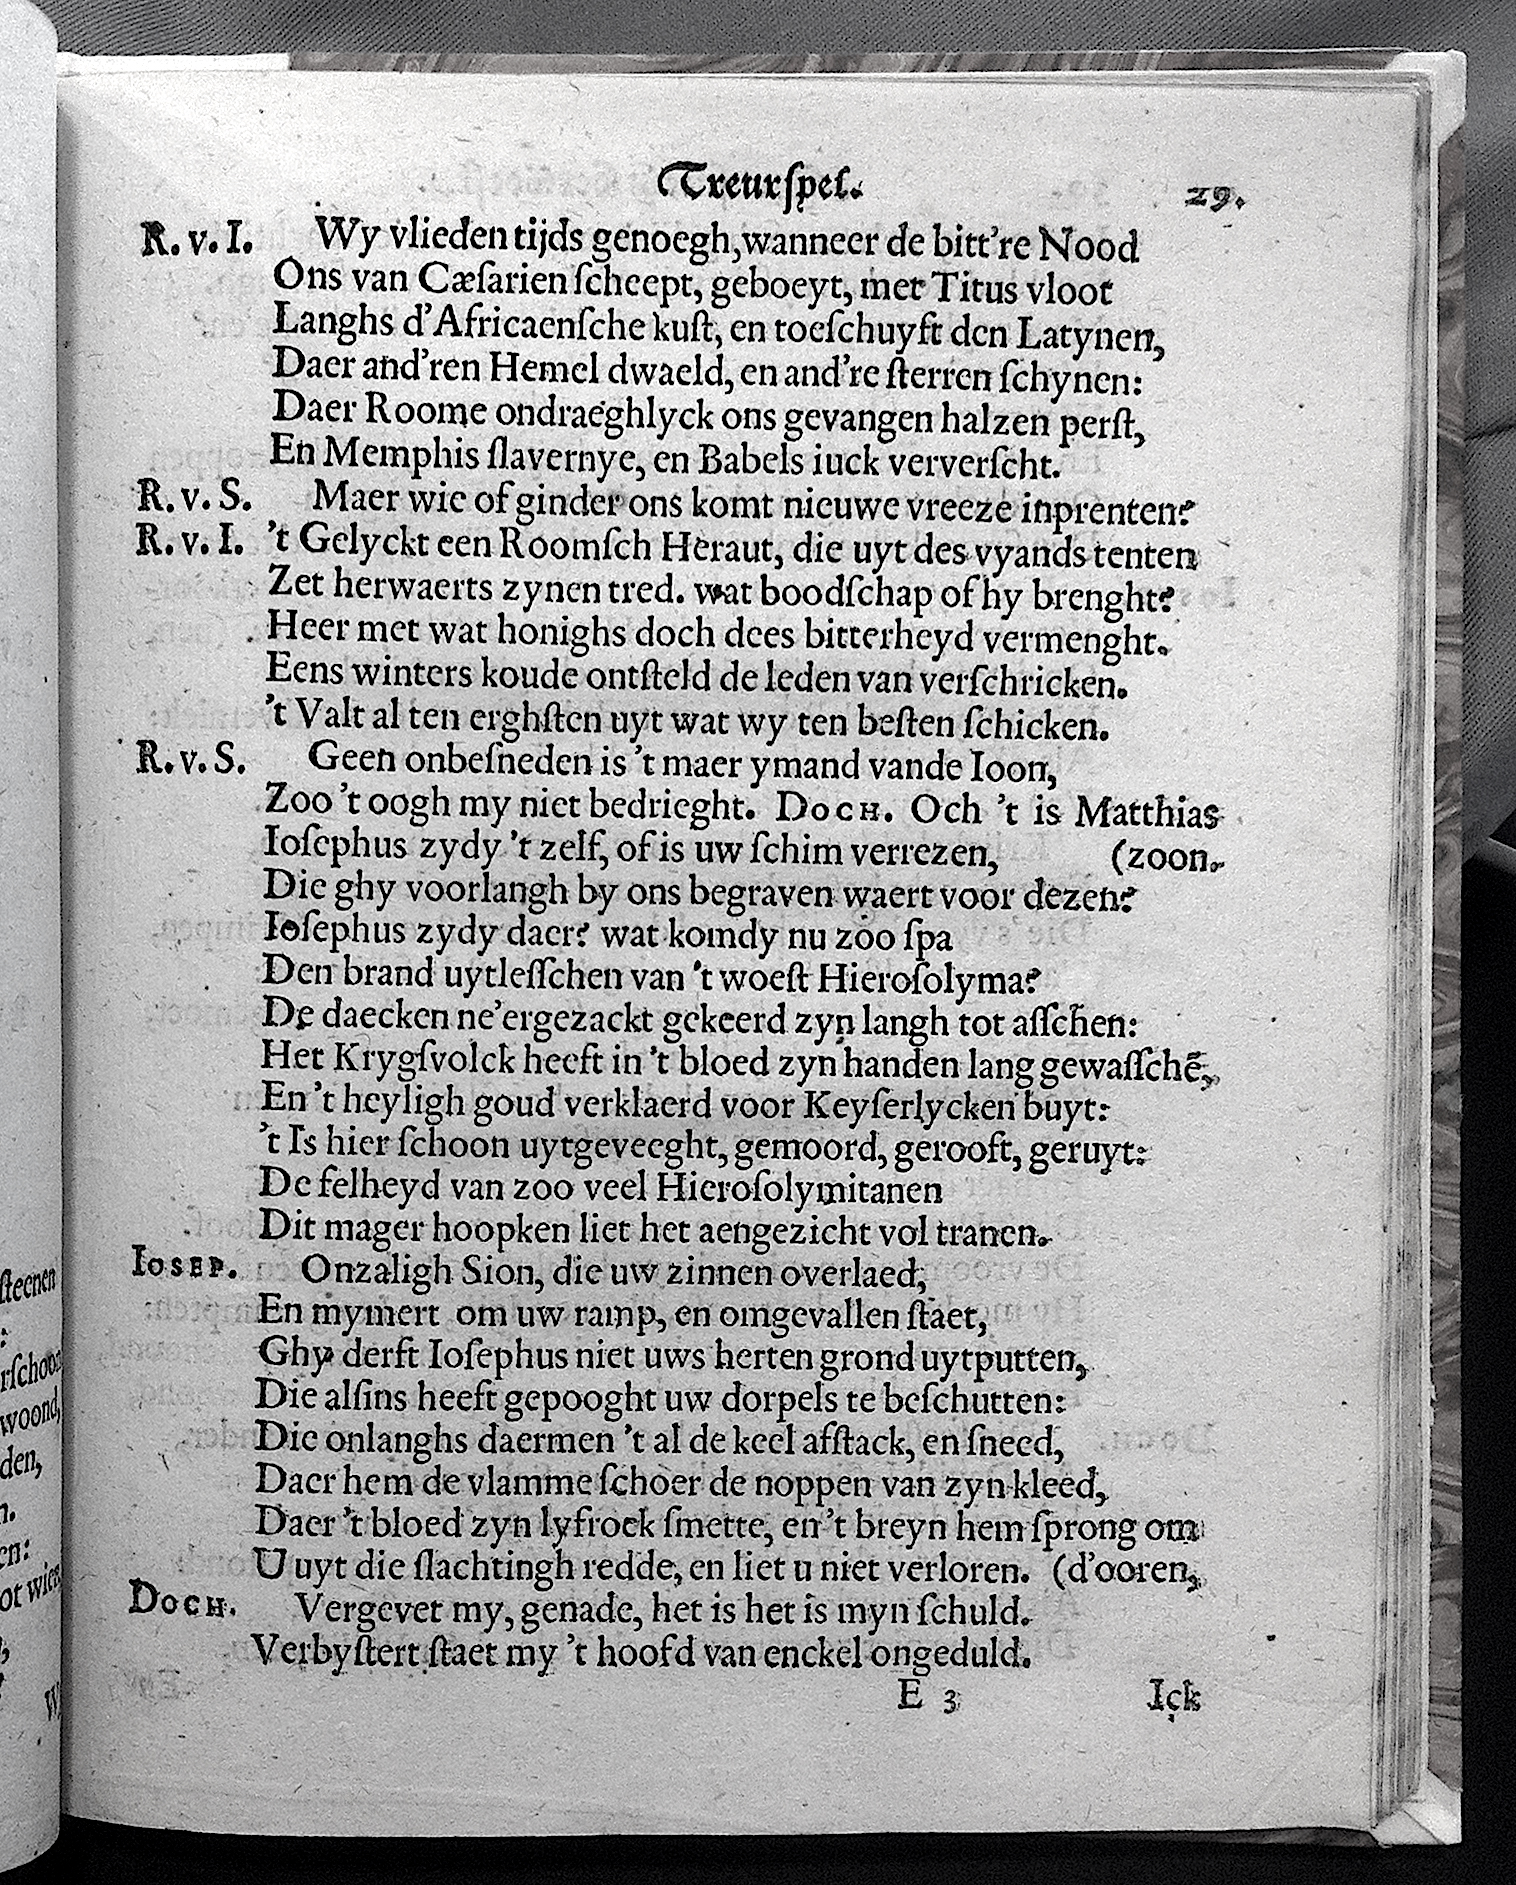 Treurſpel.
29.
R. v. I. Wy vlieden tijds genoegh, wanneer de bitt're Nood
Ons van Cæſarien ſcheept, geboeyt, met Titus vloot
Langhs d'Africaenſche kuſt, en toeſchuyft den Latynen,
Daer and'ren Hemel dwaeld, en and're ſterren ſchynen:
Daer Roome ondraeghlyck ons gevangen halzen perſt,
En Memphis ſlavernye, en Babels iuck ververſcht.
R. v. S. Maer wie of ginder ons komt nieuwe vreeze inprenten?
R. v. I. 't Gelyckt een Roomſch Heraut, die uyt des vyands tenten
Zet herwaerts zynen tred. wat boodſchap of hy brenght?
Heer met wat honighs doch dees bitterheyd vermenght.
Eens winters koude ontſteld de leden van verſchricken.
't Valt al ten erghſten uyt wat wy ten beſten ſchicken.
R. v. S. Geen onbeſneden is 't maer ymand vande Ioon,
Zoo 't oogh my niet bedrieght. Doch. Och 't is Matthias
Ioſephus zydy 't zelf, of is uw ſchim verrezen, (zoon.
Die ghy voorlangh by ons begraven waert voor dezen?
Ioſephus zydy daer? wat komdy nu zoo ſpa
Den brand uytleſſchen van 't woeſt Hieroſolyma?
De daecken ne'ergezackt gekeerd zyn langh tot aſſchen:
Het Krygſvolck heeft in 't bloed zyn handen lang gewaſſchē,
En 't heyligh goud verklaerd voor Keyſerlycken buyt:
't Is hier ſchoon uytgeveeght, gemoord, gerooft, geruyt:
De felheyd van zoo veel Hieroſolymitanen
Dit mager hoopken liet het aengezicht vol tranen.
Iosep. Onzaligh Sion, die uw zinnen overlaed,
En mymert om uw ramp, en omgevallen ſtaet,
Ghy derft Ioſephus niet uws herten grond uytputten,
Die alſins heeft gepooght uw dorpels te beſchutten:
Die onlanghs daermen 't al de keel afſtack, en ſneed,
Daer hem de vlamme ſchoer de noppen van zyn kleed,
Daer 't bloed zyn lyfrock ſmette, en 't breyn hem ſprong om
U uyt die ſlachtingh redde, en liet u niet verloren. (d'ooren,
Doch. Vergevet my, genade, het is het is myn ſchuld.
Verbyſtert ſtaet my 't hoofd van enckel ongeduld.
E 3 Ick